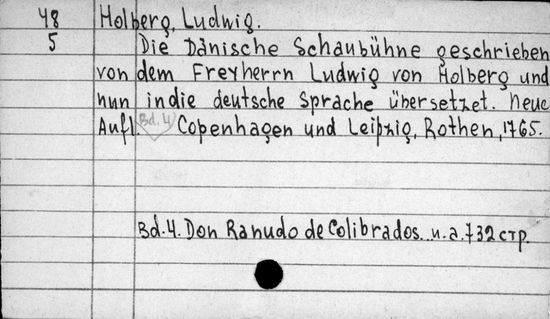 48 Holberg, Ludwig.
5 Die Dänische Schaubühne geschrieben
von dem Freyherrn Ludwig von Holberg und
nun in die deutsche Sprache übersetzet. Neue
Aufl. Bd. 4 Copenhagen und Leipzig, Rothen, 1765.
Bd. 4. Don Ranudo de Colibrados. u. a. 732 стр.